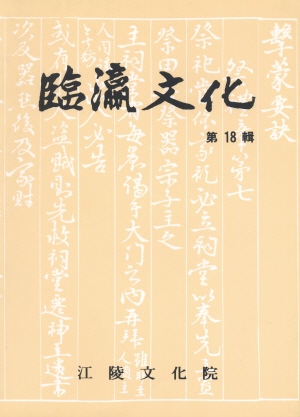 臨瀛文化
第18輯
擊蒙要訣
第七
祭祀當依家禮必立祠堂以奉先主
祭田 祭器宗子主之
主祠 每晨謁于大門之內再拜
必告
或有 盜賊則先救祠堂遷神主遺書
次及祭器然後及家財
江陵文化院